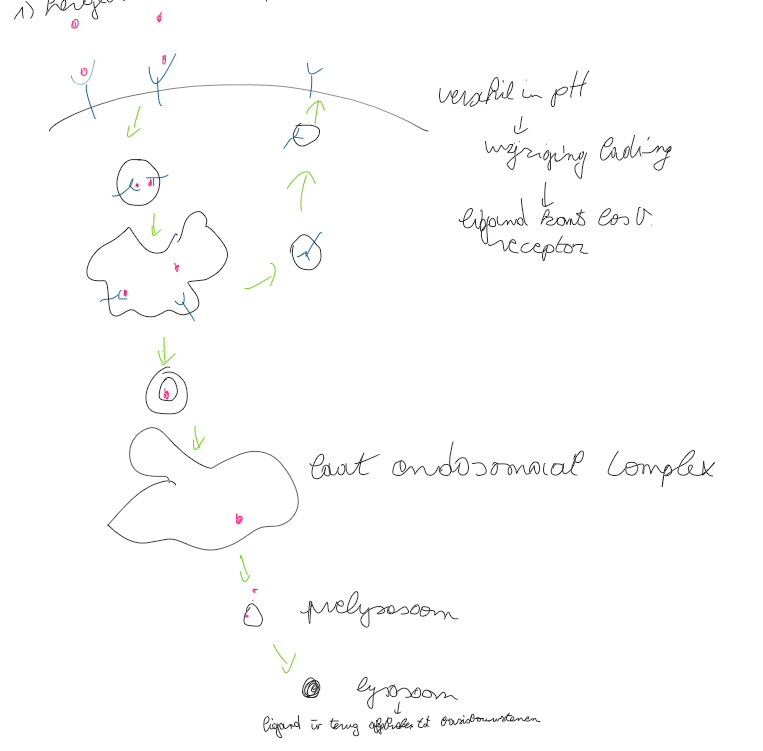 1)
verschil in pH
↓
wijziging lading
↓
ligand komt los v.
receptor
laat endosomaal complex
prelysosoom
lysosoom
↓
ligand is terug afgebroken tot basisbouwstenen